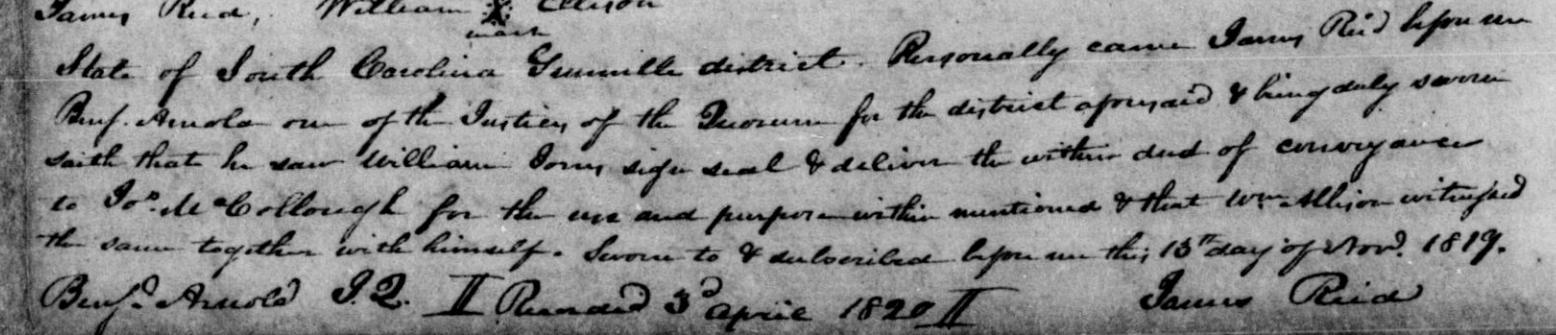 James Reid, William X Ellison
mark
State of South Carolina Greenville district. Personally came James Reid before me
Benj. Arnold one of the Justices of the Quorum for the district aforesaid & being duly sworn
saith that he saw William Jones sign seal & deliver the within deed of conveyance
to Jos. McCollough for the use and purpose within mentioned & that Wm Allison witnessed
the same together with himself. Sworn to & subscribed before me this 13th day of Novr. 1819.
Benjn. Arnold J.Q. II Recorded 3d april 1820 II James Reid